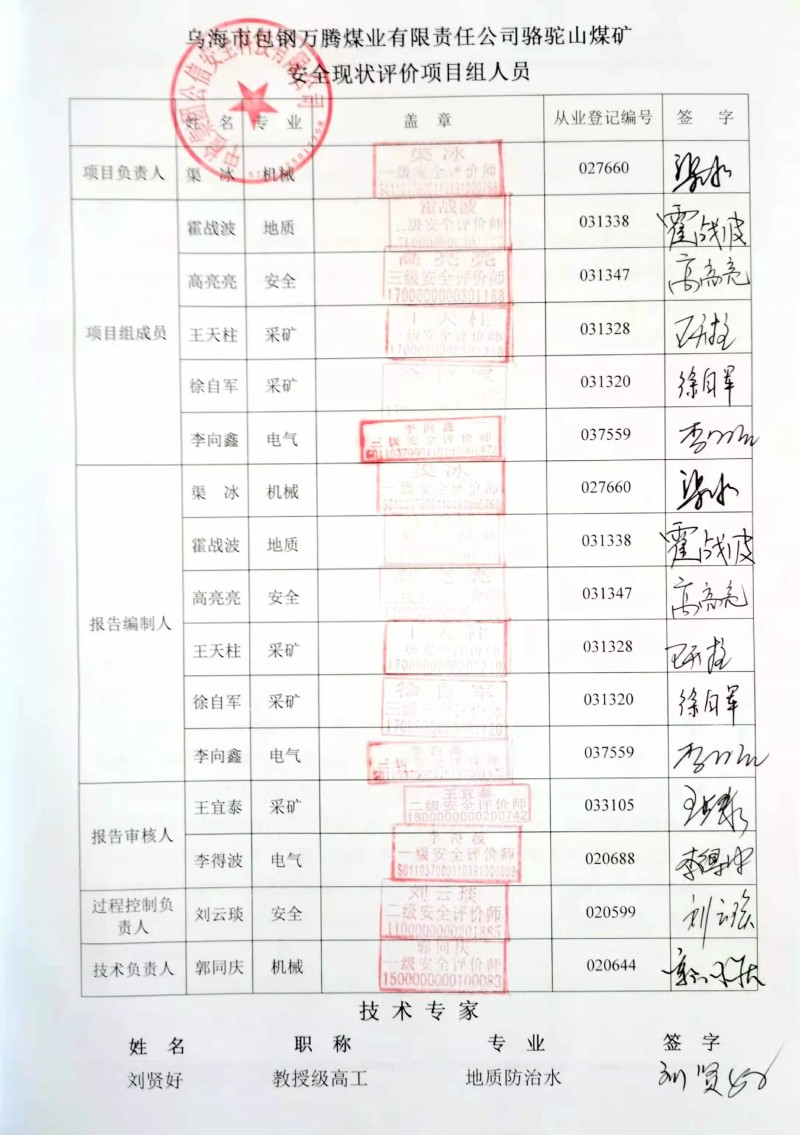 乌海市包钢万腾煤业有限责任公司骆驼山煤矿
安全现状评价项目组人员
姓 名 专 业 盖 章 从业登记编号 签 字
项目负责人 渠 冰 机械 渠冰 一级安全评价师 027660 渠冰
项目组成员
霍战波 地质 霍战波 二级安全评价师 031338 霍战波
高亮亮 安全 高亮亮 三级安全评价师 1700000000301188 031347 高亮亮
王天柱 采矿 王天柱 031328 王天柱
徐自军 采矿 徐自军 031320 徐自军
李向鑫 电气 李向鑫 二级安全评价师 037559 李向鑫
报告编制人
渠 冰 机械 渠冰 一级安全评价师 027660 渠冰
霍战波 地质 031338 霍战波
高亮亮 安全 高亮亮 031347 高亮亮
王天柱 采矿 王天柱 031328 王天柱
徐自军 采矿 徐自军 三级安全评价师 031320 徐自军
李向鑫 电气 李向鑫 二级安全评价师 037559 李向鑫
报告审核人
王宜泰 采矿 王宜泰 二级安全评价师 1800000000200742 033105 王宜泰
李得波 电气 李得波 一级安全评价师 020688 李得波
过程控制负责人 刘云琰 安全 刘云琰 二级安全评价师 1100000000201885 020599 刘云琰
技术负责人 郭同庆 机械 郭同庆 一级安全评价师 1500000000100083 020644 郭同庆
技 术 专 家
姓 名 职 称 专 业 签 字
刘贤好 教授级高工 地质防治水 刘贤好